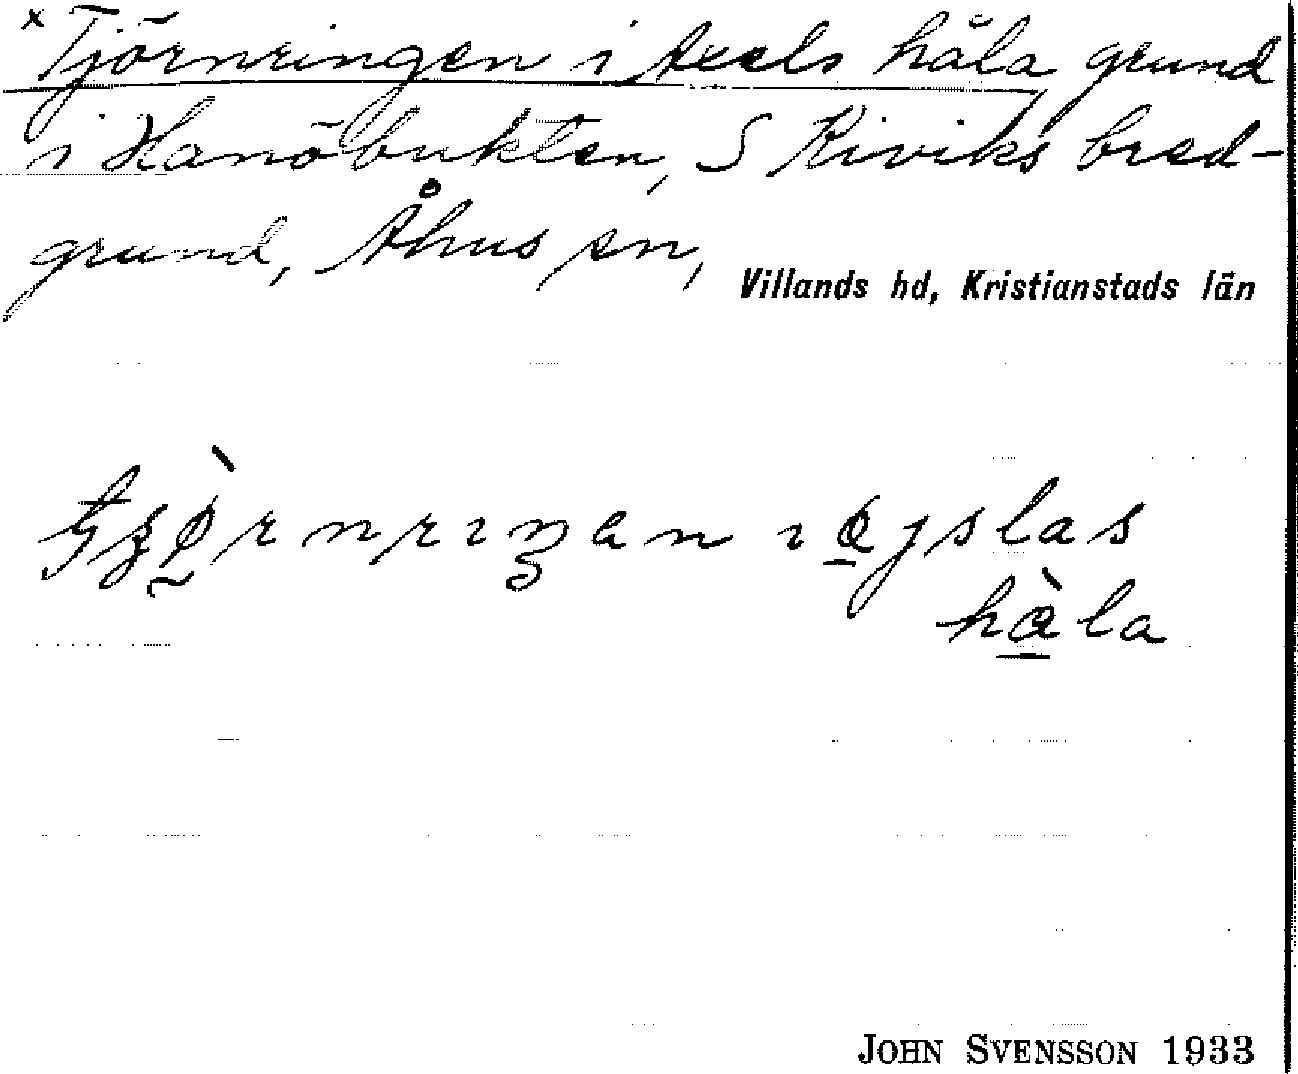 x Tjörnringen i Axels håla grund
i Hanöbukten, S Kiviks bred-
grund, Åhus sn,
Villands hd, Kristianstads län
håla
JOHN SVENSSON 1933